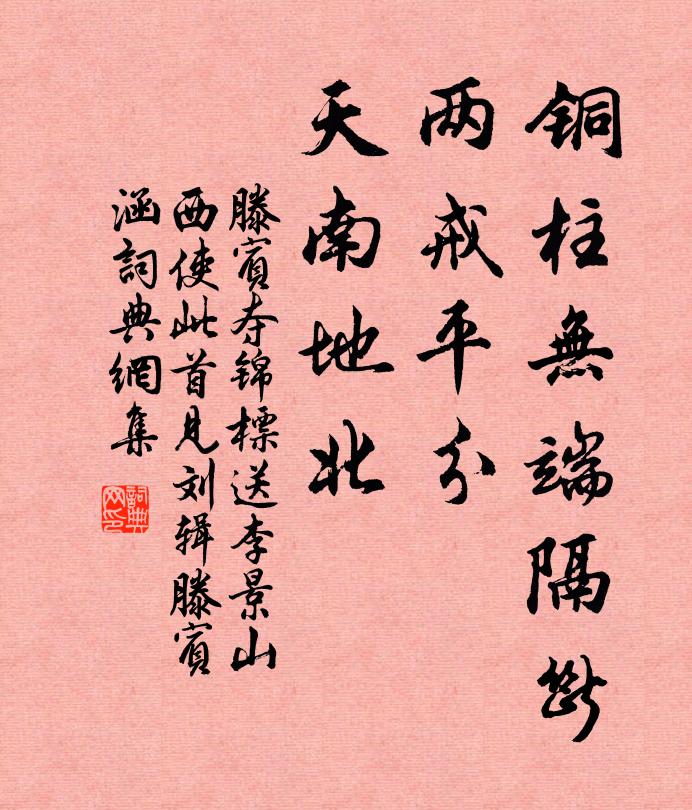 铜柱無端隔断
两戒平分
天南地北
滕賓夺锦標送李景山
西使此首见刘辑滕賓
涵詞典網集
詞典网印